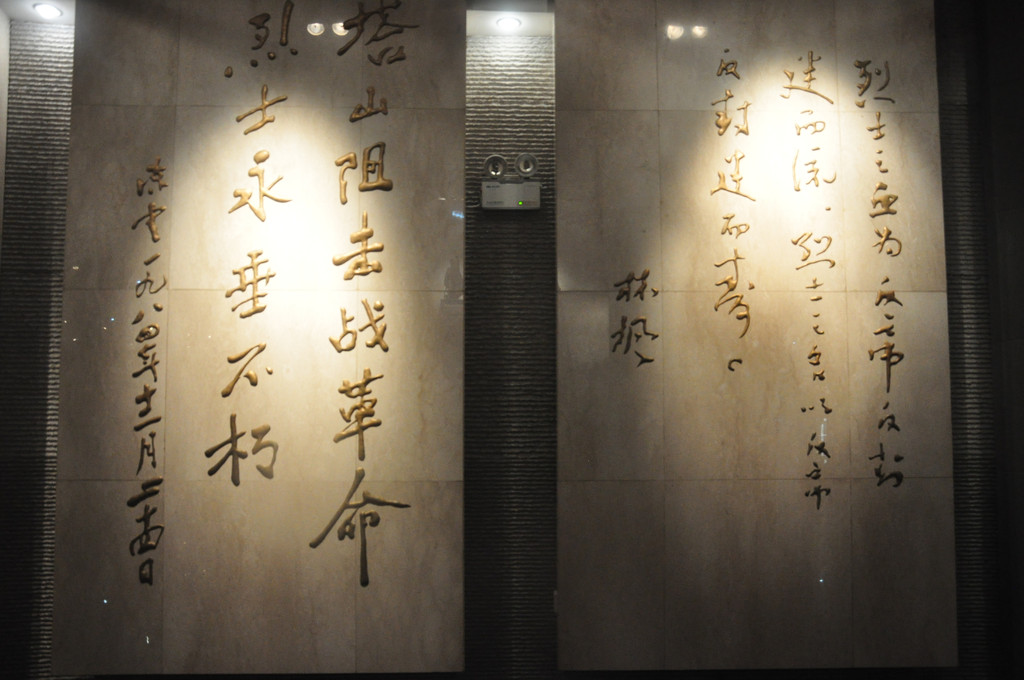 烈士之血为反帝反封
建而流.烈士之名以反帝
反封建而寿。
林枫
塔山阻击战革命
烈士永垂不朽
陈云一九八四年十二月二十四日